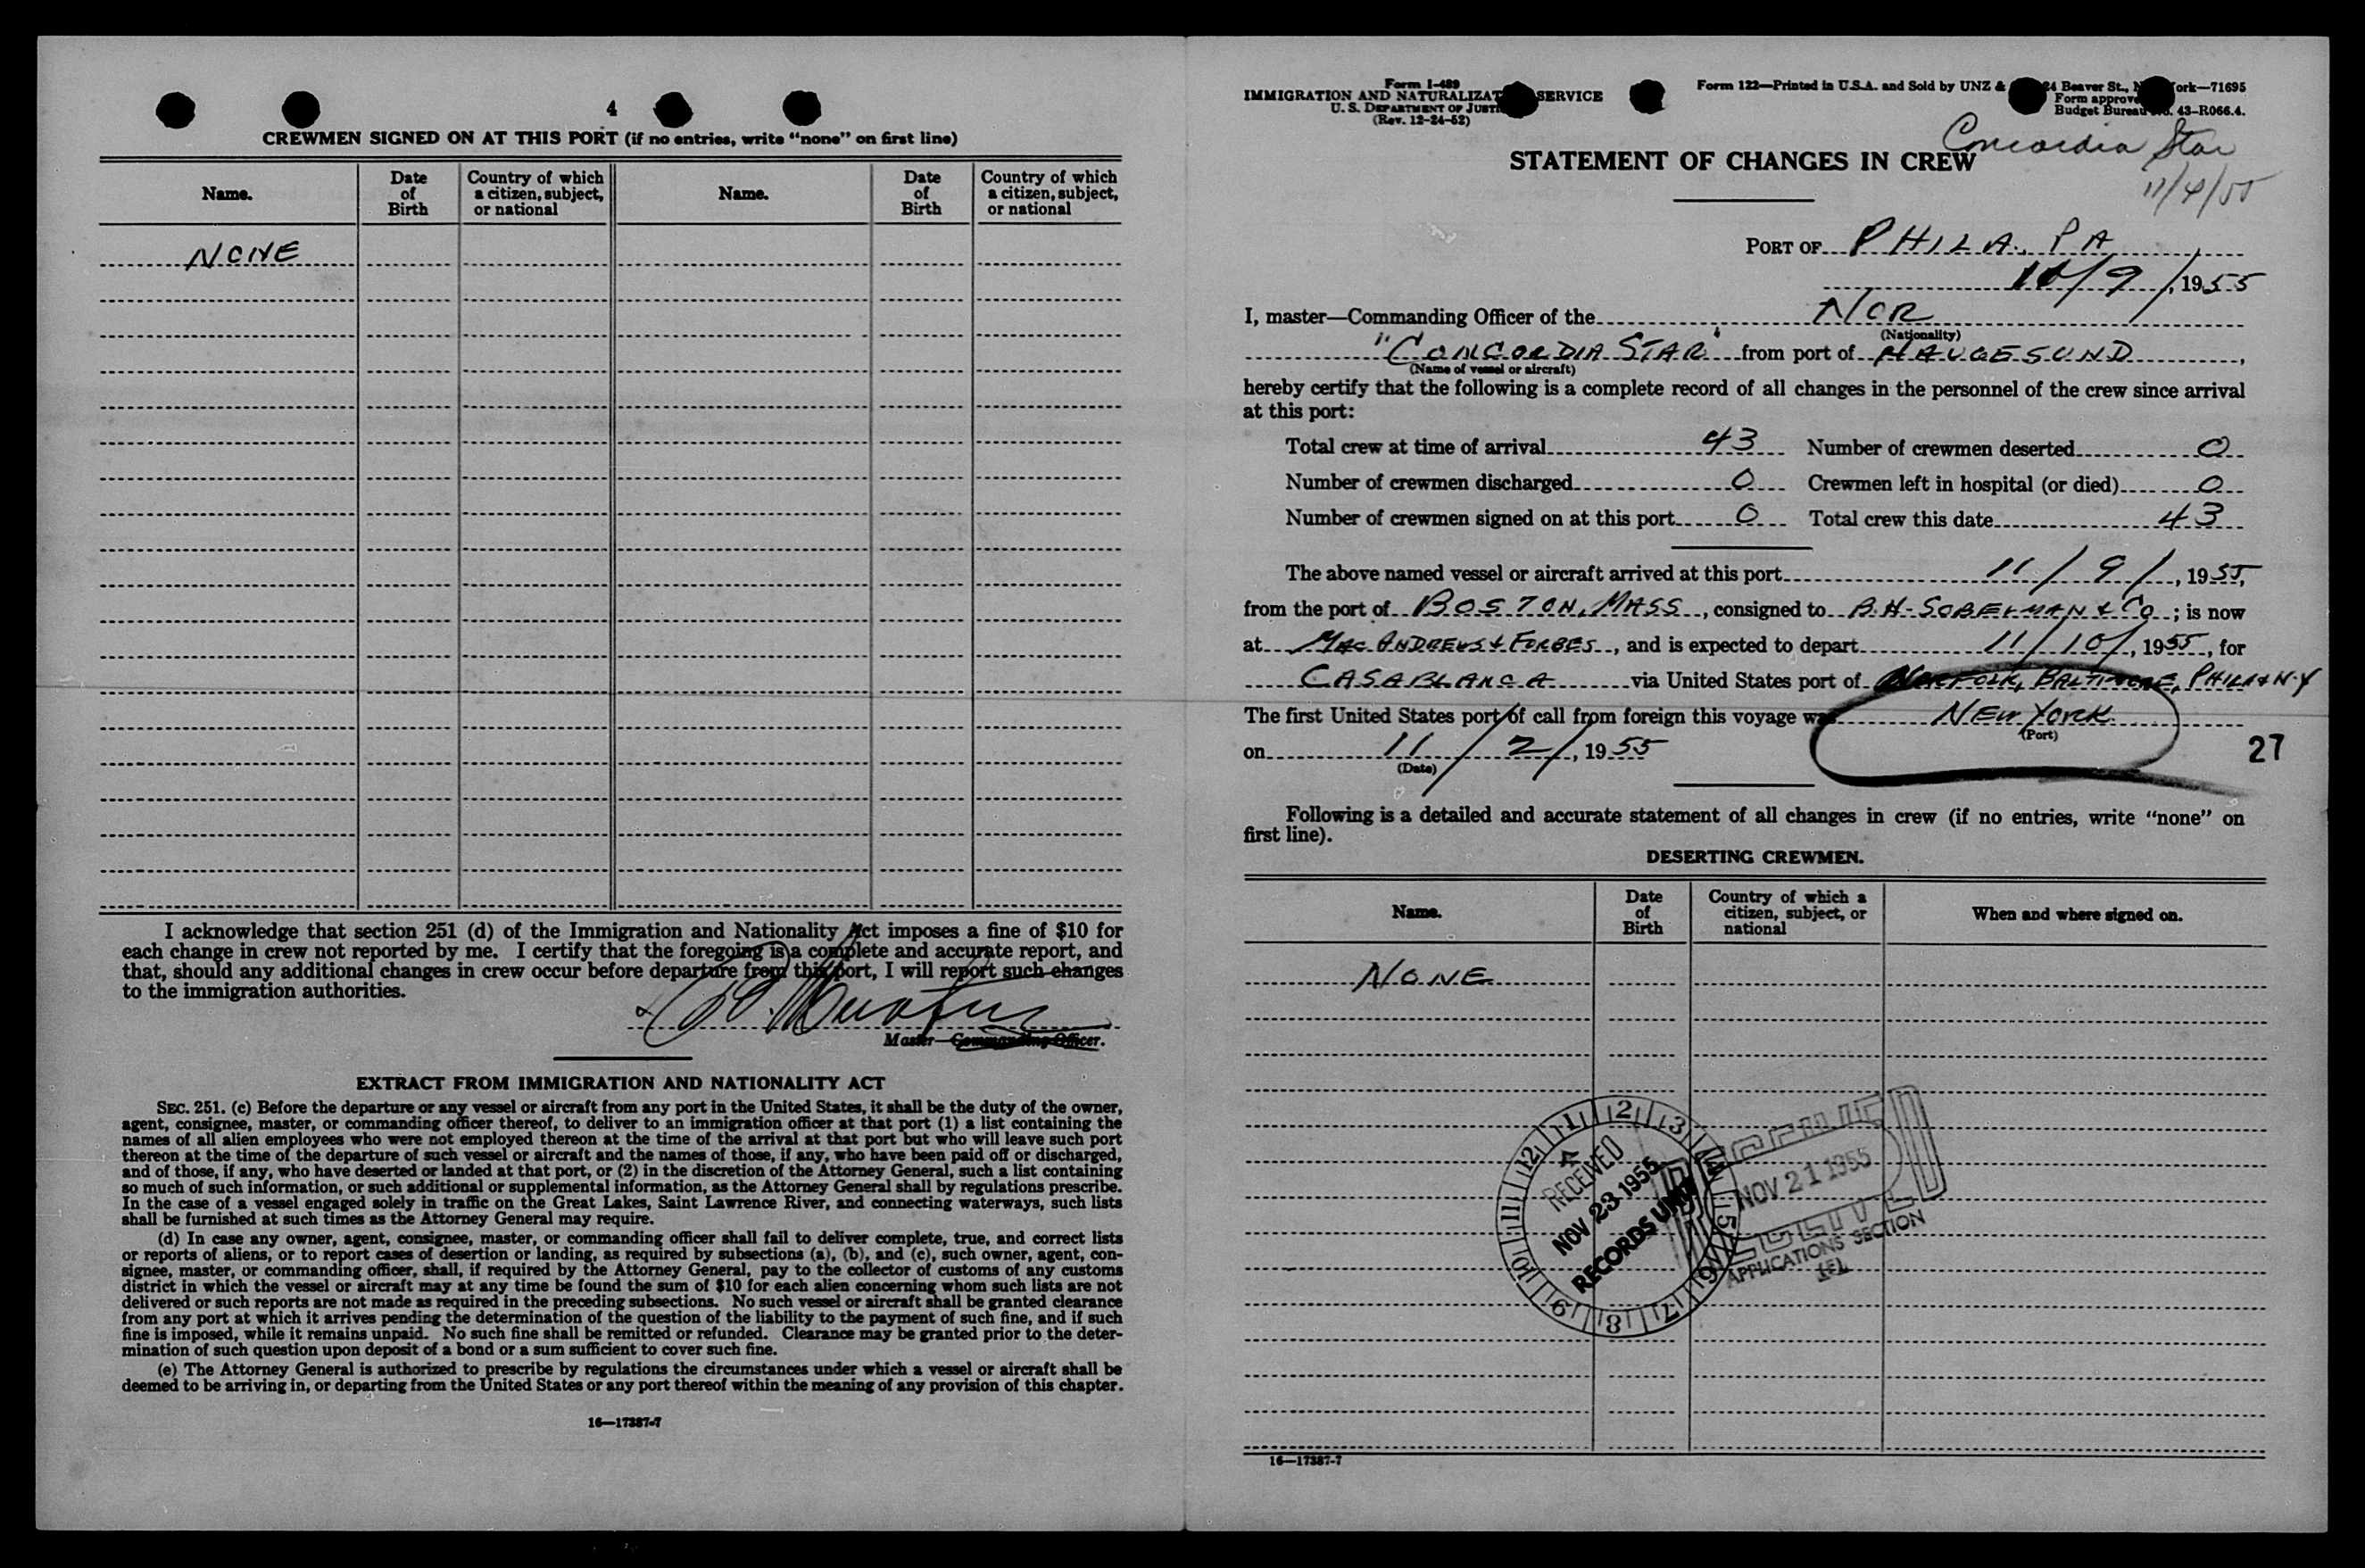 4
CREWMEN SIGNED ON AT THIS PORT (if no entries, write “none” on first line)
Name.
Date
of
Birth
Country of which
a citizen, subject,
or national
Name.
Date
of
Birth
Country of which
a citizen, subject,
or national
NONE
I acknowledge that section 251 (d) of the Immigration and Nationality Act imposes a fine of $10 for
each change in crew not reported by me. I certify that the foregoing is a complete and accurate report, and
that, should any additional changes in crew occur before departure from this port, I will report such changes
to the immigration authorities.
Master—Commanding Officer.
EXTRACT FROM IMMIGRATION AND NATIONALITY ACT
SEC. 251. (c) Before the departure or any vessel or aircraft from any port in the United States, it shall be the duty of the owner,
agent, consignee, master, or commanding officer thereof, to deliver to an immigration officer at that port (1) a list containing the
names of all alien employees who were not employed thereon at the time of the arrival at that port but who will leave such port
thereon at the time of the departure of such vessel or aircraft and the names of those, if any, who have been paid off or discharged,
and of those, if any, who have deserted or landed at that port, or (2) in the discretion of the Attorney General, such a list containing
so much of such information, or such additional or supplemental information, as the Attorney General shall by regulations prescribe.
In the case of a vessel engaged solely in traffic on the Great Lakes, Saint Lawrence River, and connecting waterways, such lists
shall be furnished at such times as the Attorney General may require.
(d) In case any owner, agent, consignee, master, or commanding officer shall fail to deliver complete, true, and correct lists
or reports of aliens, or to report cases of desertion or landing, as required by subsections (a), (b), and (c), such owner, agent, con-
signee, master, or commanding officer, shall, if required by the Attorney General, pay to the collector of customs of any customs
district in which the vessel or aircraft may at any time be found the sum of $10 for each alien concerning whom such lists are not
delivered or such reports are not made as required in the preceding subsections. No such vessel or aircraft shall be granted clearance
from any port at which it arrives pending the determination of the question of the liability to the payment of such fine, and if such
fine is imposed, while it remains unpaid. No such fine shall be remitted or refunded. Clearance may be granted prior to the deter-
mination of such question upon deposit of a bond or a sum sufficient to cover such fine.
(e) The Attorney General is authorized to prescribe by regulations the circumstances under which a vessel or aircraft shall be
deemed to be arriving in, or departing from the United States or any port thereof within the meaning of any provision of this chapter.
16—17387-7
Form I-489
IMMIGRATION AND NATURALIZAT SERVICE
U. S. DEPARTMENT OF JUST
(Rev. 12-24-52)
Form 122—Printed in U.S.A. and Sold by UNZ & 24 Beaver St., N ork—71695
Form approve
Budget Bureau No. 43-R066.4.
Concordia Star
11/4/55
STATEMENT OF CHANGES IN CREW
PORT OF PHILA. PA
/9/, 1955
I, master—Commanding Officer of the NOR
(Nationality)
"CONCORDIA STAR" from port of HAUGESUND,
(Name of vessel or aircraft)
hereby certify that the following is a complete record of all changes in the personnel of the crew since arrival
at this port:
Total crew at time of arrival 43 Number of crewmen deserted 0
Number of crewmen discharged 0 Crewmen left in hospital (or died) 0
Number of crewmen signed on at this port 0 Total crew this date 43
The above named vessel or aircraft arrived at this port 11/9/, 1955,
from the port of BOSTON, MASS, consigned to B.H. SOBELMAN & CO; is now
at MAC ANDREWS & FORBES, and is expected to depart 11/10/, 1955, for
CASABLANCA via United States port of NORFOLK, BALTIMORE, PHILA & N.Y
The first United States port of call from foreign this voyage was NEW YORK
(Port)
on 11/2/, 1955
(Date)
27
Following is a detailed and accurate statement of all changes in crew (if no entries, write “none” on
first line).
DESERTING CREWMEN.
Name.
Date
of
Birth
Country of which a
citizen, subject, or
national
When and where signed on.
NONE
12 1 2 3 4 5 6 7 8 9 10 11 12
RECEIVED
NOV 23 1955
RECORDS UNIT
NOV 21 1955
RECEIVED
APPLICATIONS SECTION
16—17387-7